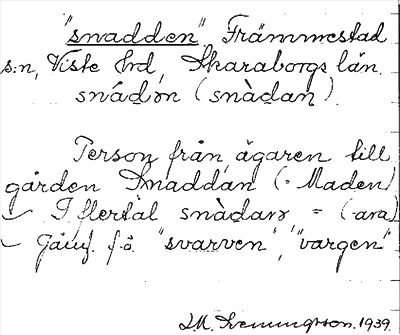 "snadden" Främmestad
s:n, Viste hrd, Skaraborgs län.
snádọn (snàdan).
Person från, ägaren till
gården Snaddan (= Maden)
I flertal snàdar = (-ara)
Jämf. "svarven", "vargen"
Sveningsson. 1939.